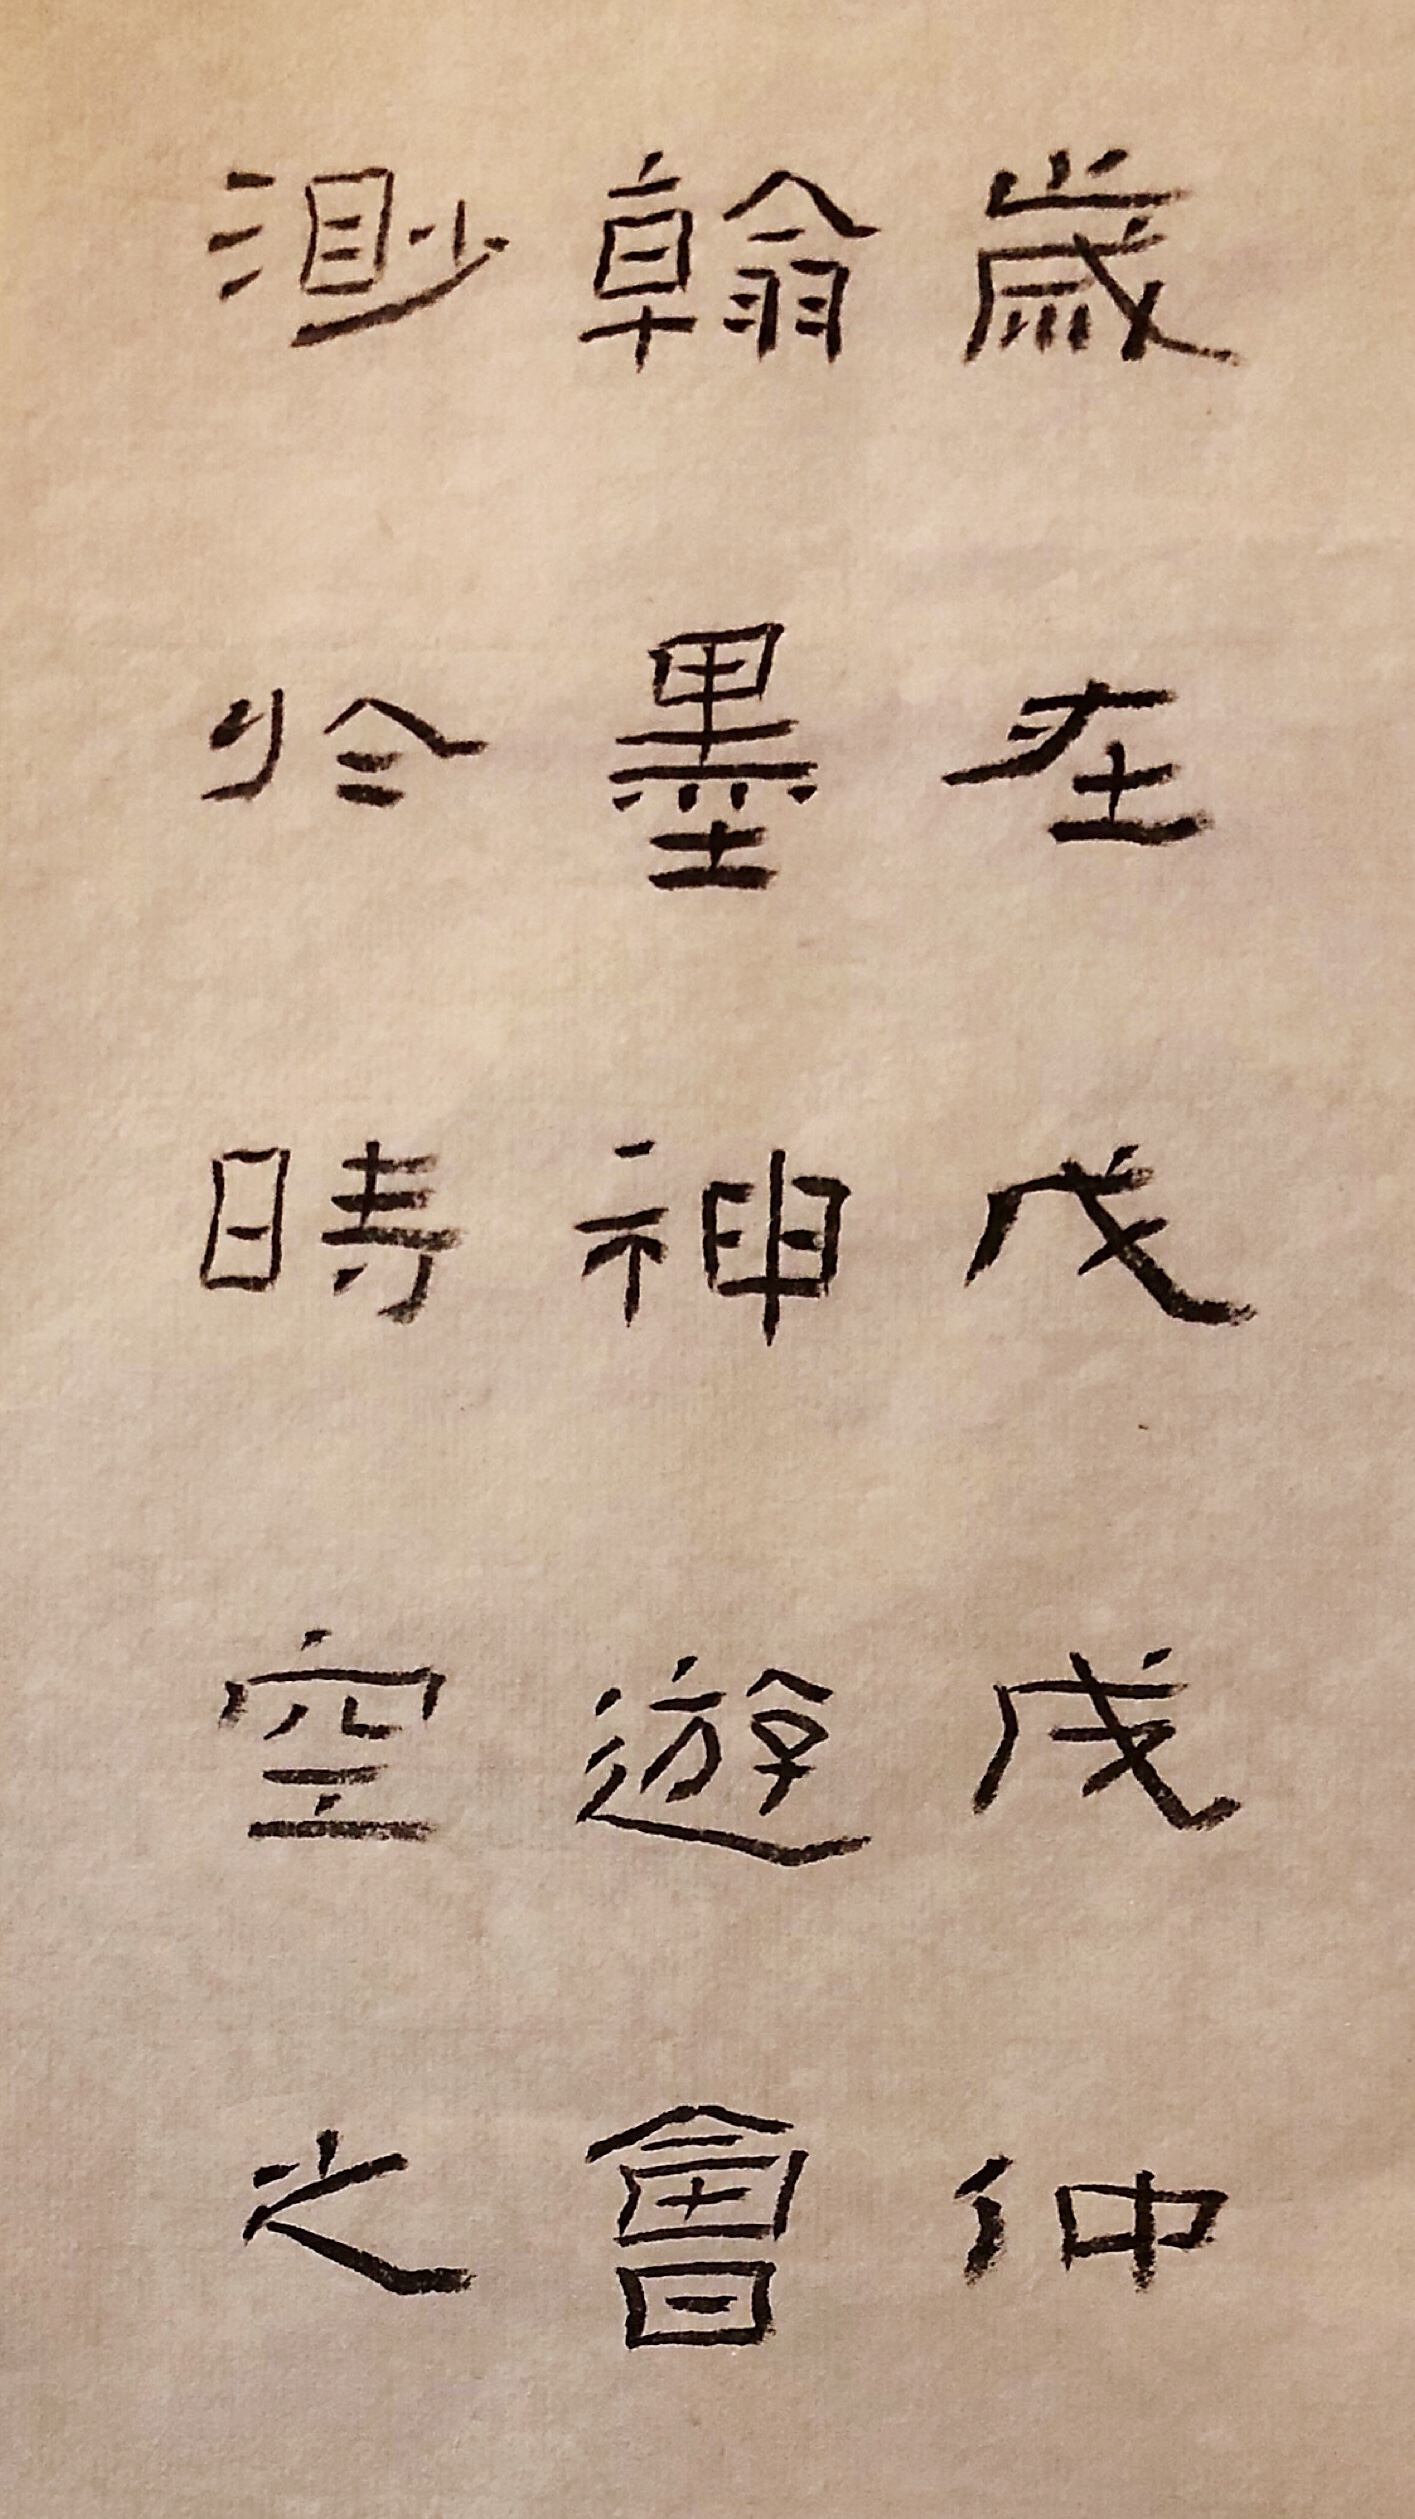 歲在戊戌仲
翰墨神遊會
渺於時空之